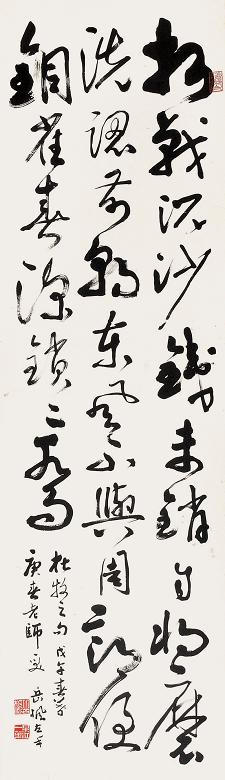 折戟沉沙鐵未銷自將磨
洗認前朝東風不與周郎便
銅雀春深鎖二喬
杜牧之句戊午春
老師